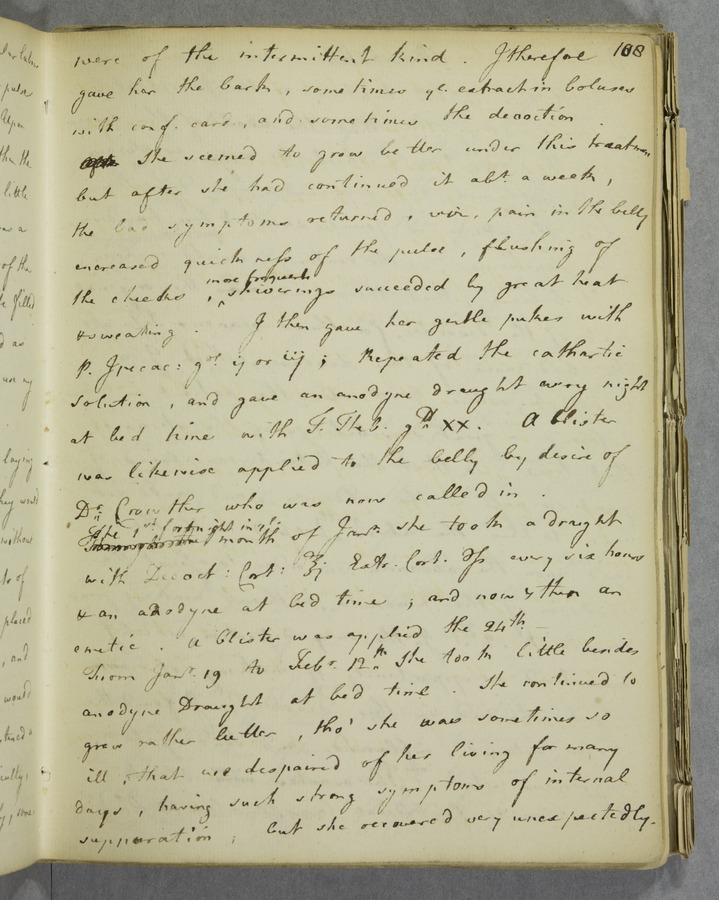 188
were of the intermittent kind. I therefore
gave her the bark, sometimes ye. extract in boluses
with conf. card., and sometimes the decoction
She seemed to grow better under this treatmen
but after she had continued it abt. a week,
the bad symptoms returned, viz. pain in the belly
encreased quickness of the pulse, flushing of
more frequent
the cheeks, shiverings succeeded by great heat
& sweating. I then gave her gentle pukes with
P. Ipecac: grs. ij or iij; Repeated the cathartic
solution, and gave an anodyne draught every night
at bed time with T. Theb. gtt XX. A blister
was likewise applied to the belly by desire of
Dr. Crowther who was now called in.
The 1st fortnight in ye.
month of Janry. she took a draught
with Decoct: Cort: ʒj Extr. Cort. ʒss every six hours
& an anodyne at bed time; and now & then an
emetic. A blister was applied the 24th.
From Janr. 19 to Febr. 12th. She took little besides
anodyne Draught at bed time. She continued to
grow rather better, tho' she was sometimes so
ill, that we despaired of her living for many
days, having such strong symptoms of internal
suppuration; but she recovered very unexpectedly.